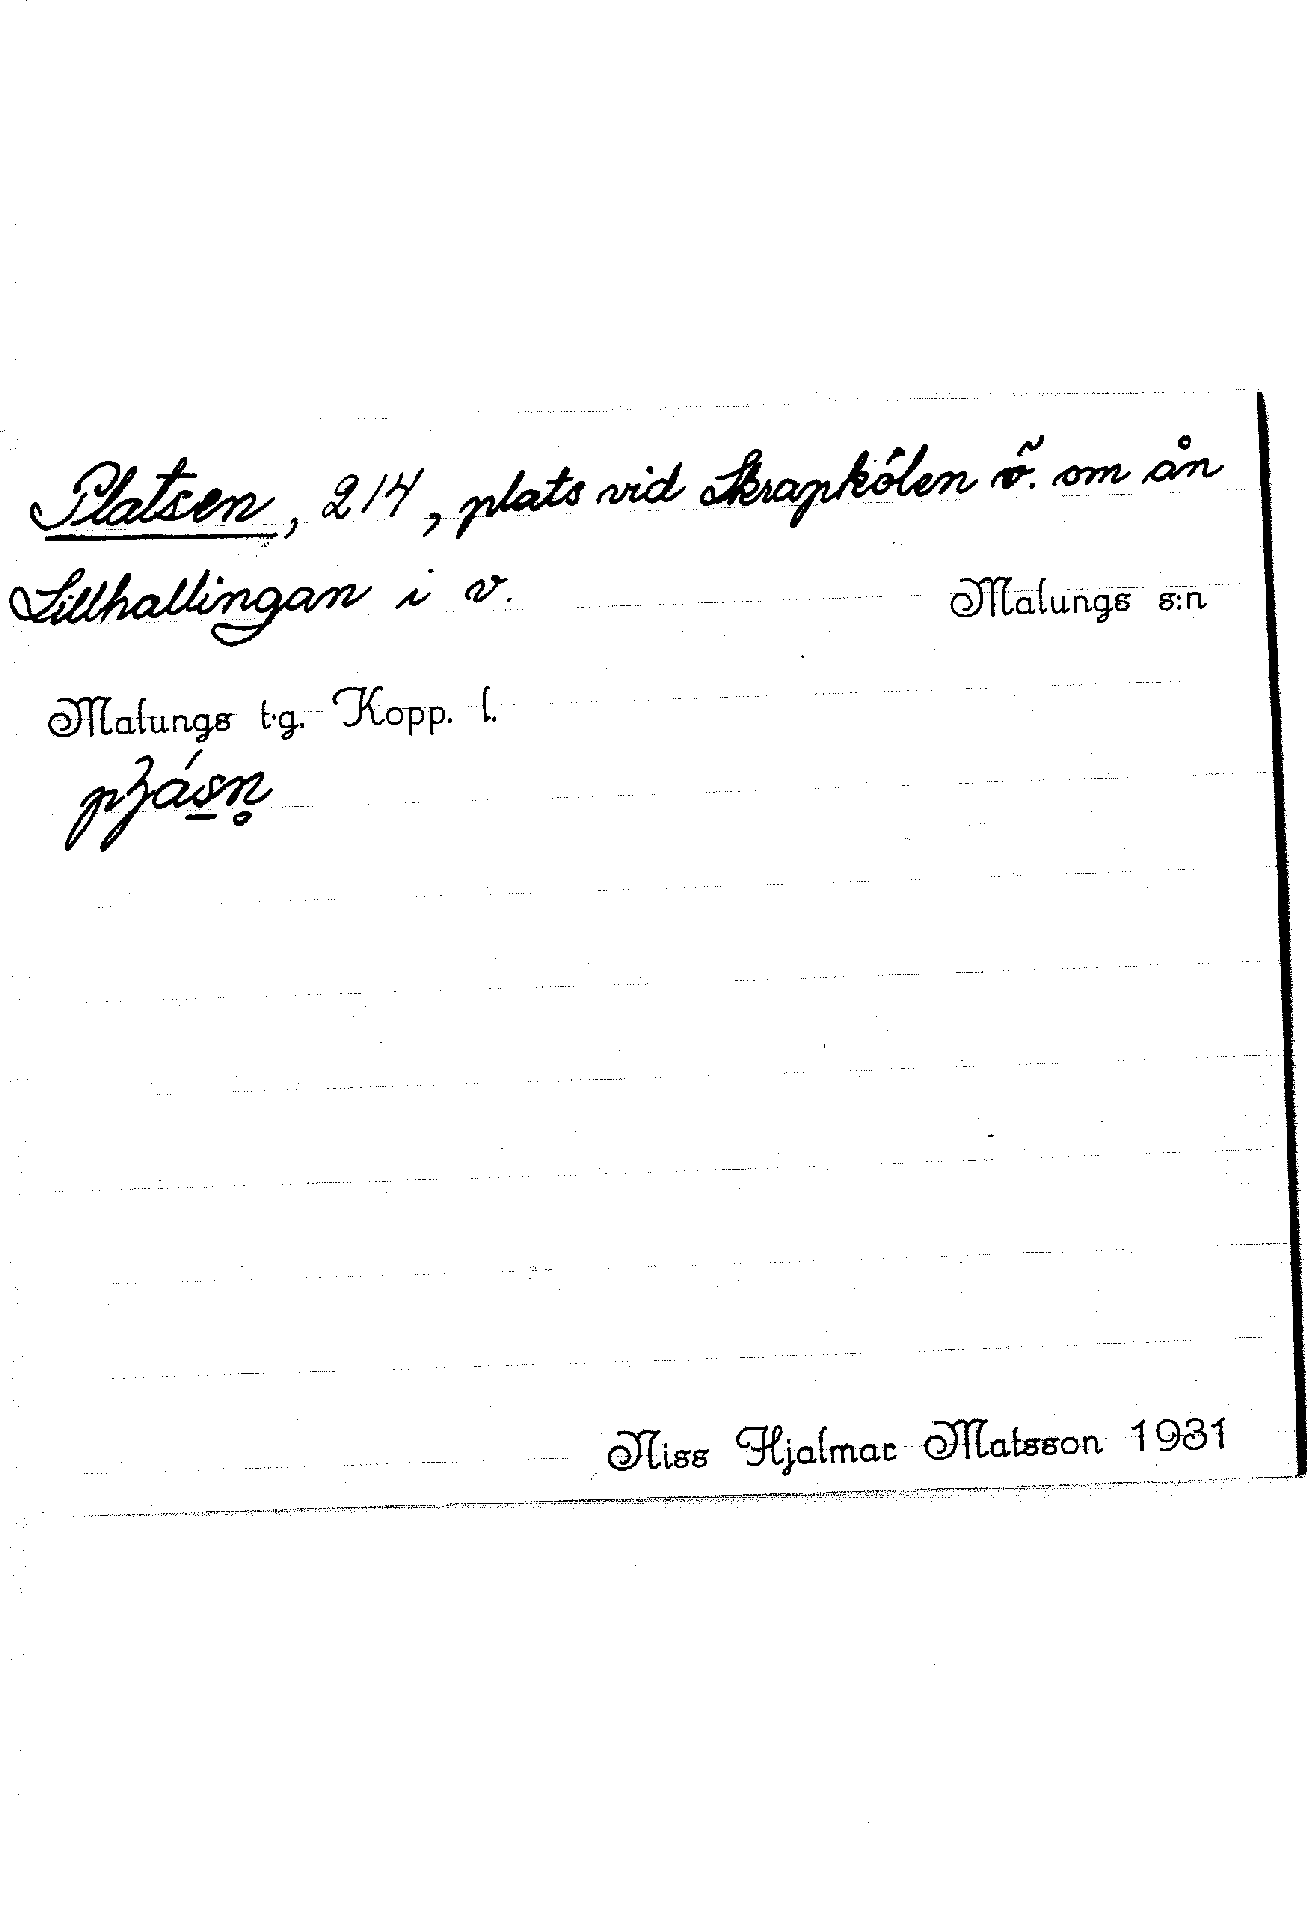 Platsen, 214, plats vid Skrapkölen ö. om ån
Lillhallingan i v. Malungs s:n
Malungs t.g. Kopp. l.
Niss Hjalmar Matsson 1931